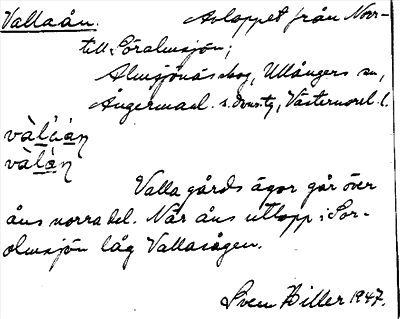 Vallaån. Avloppet från Norr-
till Söralmsjön;
Almsjönäs skog, Ullångers sn,
Ångermanl. s. dvarstg, Västernorrl. l.
và̀låa̱ṇ
và̀lå̱ṇ
Valla gårds ägor går över
åns norra del. När åns utlopp i Sör-
almsjön låg Vallasågen.
Sven Hiller 1947.